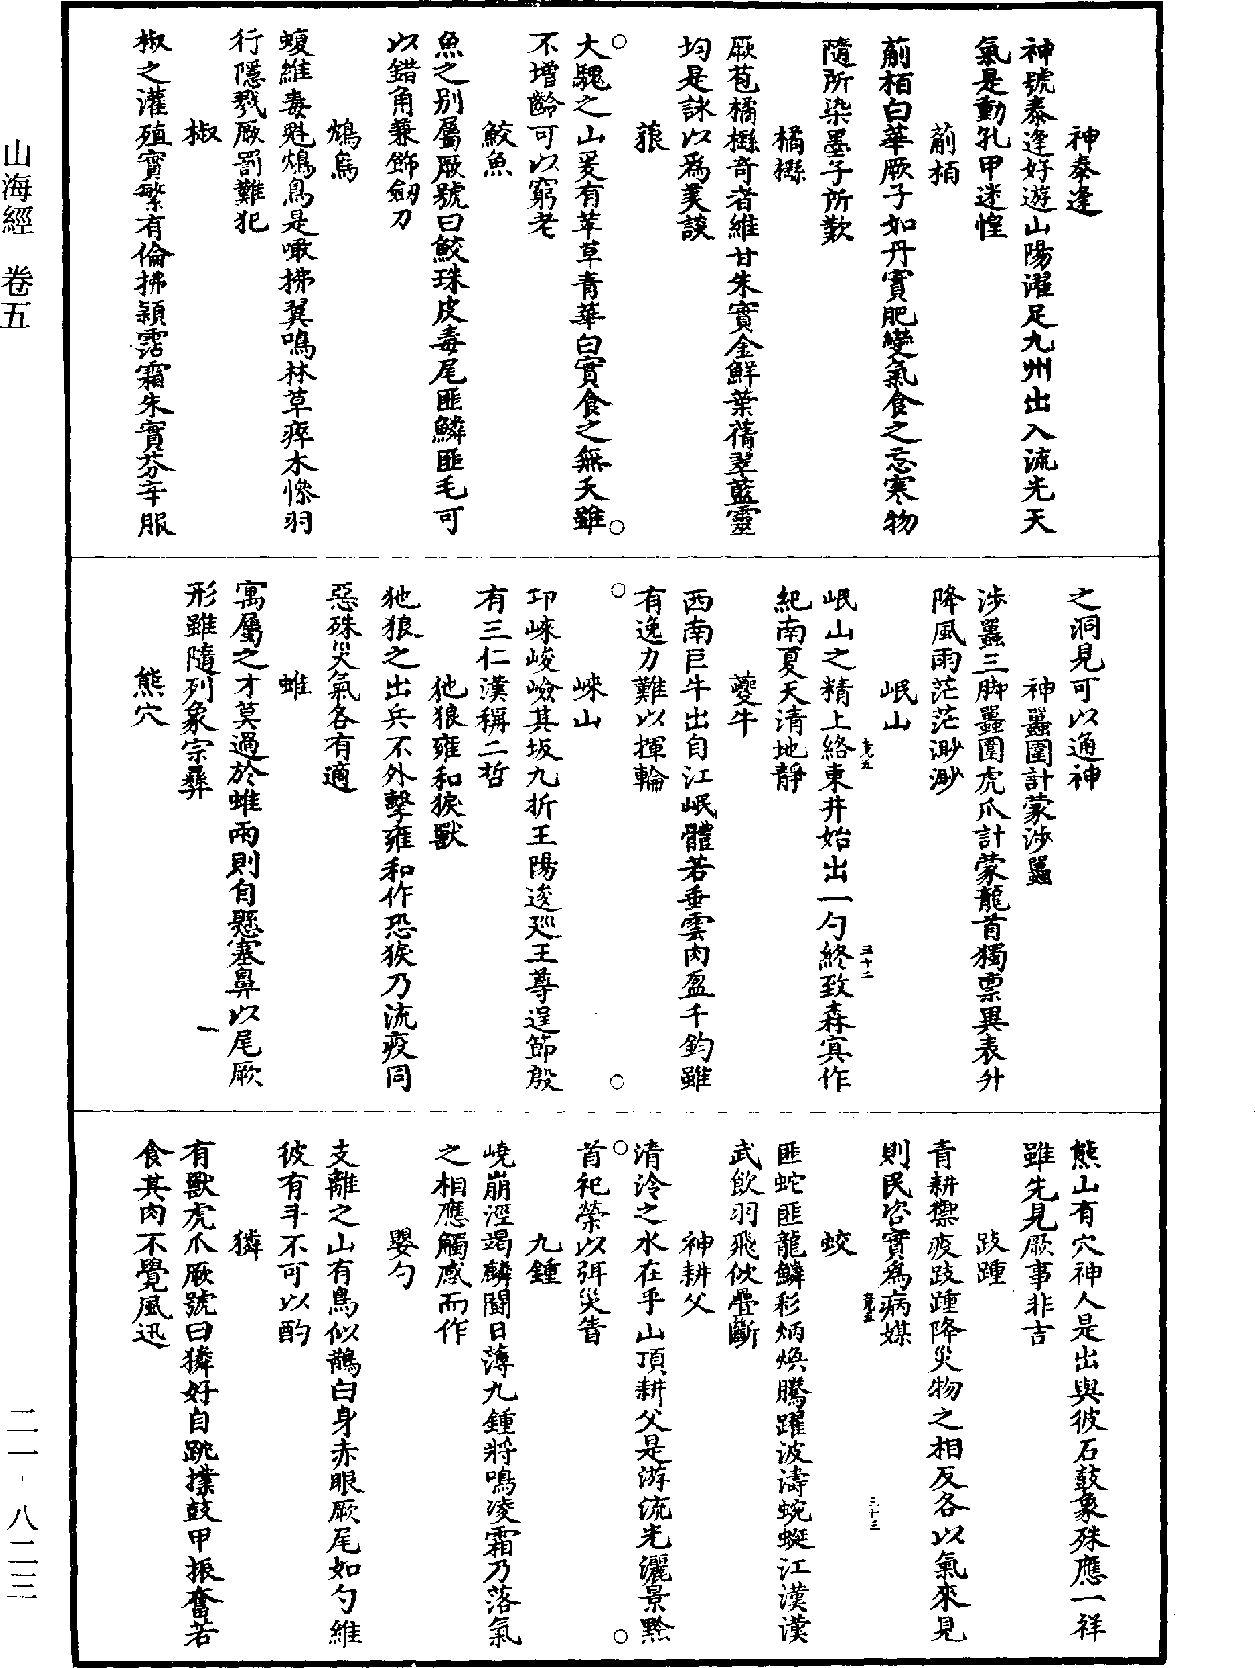 山海經 卷五
神泰逢
神號泰逢好遊山陽濯足九州出入流光天
氣是動孔甲迷惶
葪栢
葪栢白華厥子如丹實肥變氣食之忘寒物
隨所染墨子所歎
橘櫾
厥苞橘櫾奇者維甘朱實金鮮葉蒨翠藍靈
均是詠以爲美談
蒗
大騩之山爰有苹草青華白實食之無夭雖
不增齡可以窮老
鮫魚
魚之别屬厥號曰鮫珠皮毒尾匪鱗匪毛可
以錯角兼飾劒刀
鴆鳥
蝮維毒魁鴆鳥是噉拂翼鳴林草瘁木慘羽
行隱戮厥罰難犯
椒
椒之灌殖實繁有倫拂穎霑霜朱實芬辛服
之洞見可以通神
神𧕦圍計蒙涉𧕦
涉𧕦三脚𧕦圍虎爪計蒙龍首獨稟異表升
降風雨茫茫渺渺
岷山
岷山之精上絡東井始出一勺終致森㝠作
紀南夏天清地靜
夔牛
西南巨牛出自江岷體若垂雲肉盈千鈞雖
有逸力難以揮輪
崍山
邛崍峻嶮其坂九折王陽逡廵王尊逞節殷
有三仁漢稱二哲
㹢狼雍和𤟇獸
㹢狼之出兵不外擊雍和作恐𤟇乃流疫同
惡殊災氣各有適
蜼
寓屬之才莫過於蜼雨則自懸塞鼻以尾厥
形雖隨列象宗彞
熊穴
熊山有穴神人是出與彼石鼓象殊應一祥
雖先見厥事非吉
跂踵
青耕禦疫跂踵降災物之相反各以氣來見
則民咨實爲病媒
蛟
匪蛇匪龍鱗彩炳煥騰躍波濤蜿蜒江漢漢
武飲羽飛佽疊斷
神耕父
清泠之水在乎山頂耕父是游流光灑景黔
首祀禜以弭災眚
九鍾
嶢崩涇竭麟鬭日薄九鍾將鳴凌霜乃落氣
之相應觸感而作
嬰勺
支離之山有鳥似鵲白身赤眼厥尾如勺維
彼有斗不可以酌
獜
有獸虎爪厥號曰獜好自跳撲鼓甲振奮若
食其肉不覺風迅
卷五
三十二
卷五
三十三
二一‧八二三